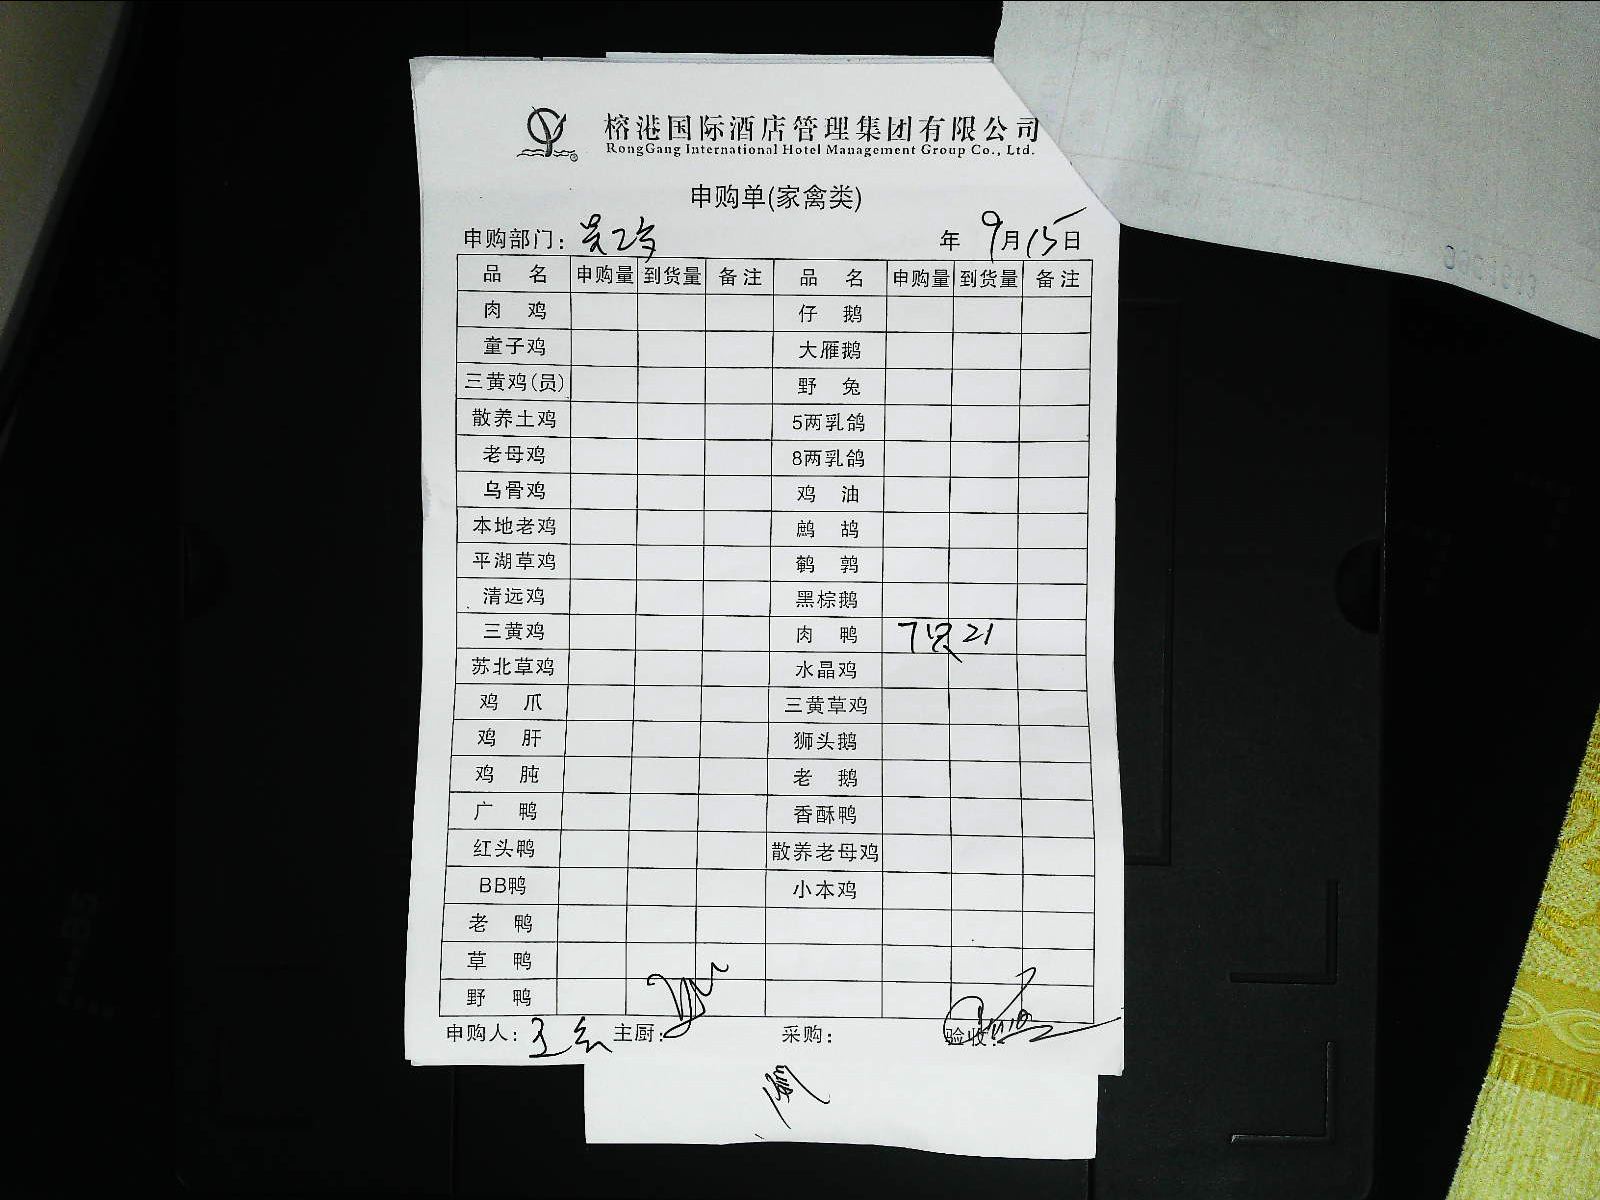 榕港国际酒店管理集团有限公司
RongGang International Hotel Management Group Co., Ltd.
申购单(家禽类)
申购部门： 年 9月15日
品名 申购量 到货量 备注 品名 申购量 到货量 备注
肉鸡 仔鹅
童子鸡 大雁鹅
三黄鸡(员) 野兔
散养土鸡 5两乳鸽
老母鸡 8两乳鸽
乌骨鸡 鸡油
本地老鸡 鹧鸪
平湖草鸡 鹌鹑
清远鸡 黑棕鹅
三黄鸡 肉鸭 7只 21
苏北草鸡 水晶鸡
鸡爪 三黄草鸡
鸡肝 狮头鹅
鸡肫 老鹅
广鸭 香酥鸭
红头鸭 散养老母鸡
BB鸭 小本鸡
老鸭
草鸭
野鸭
申购人： 主厨： 采购： 验收：